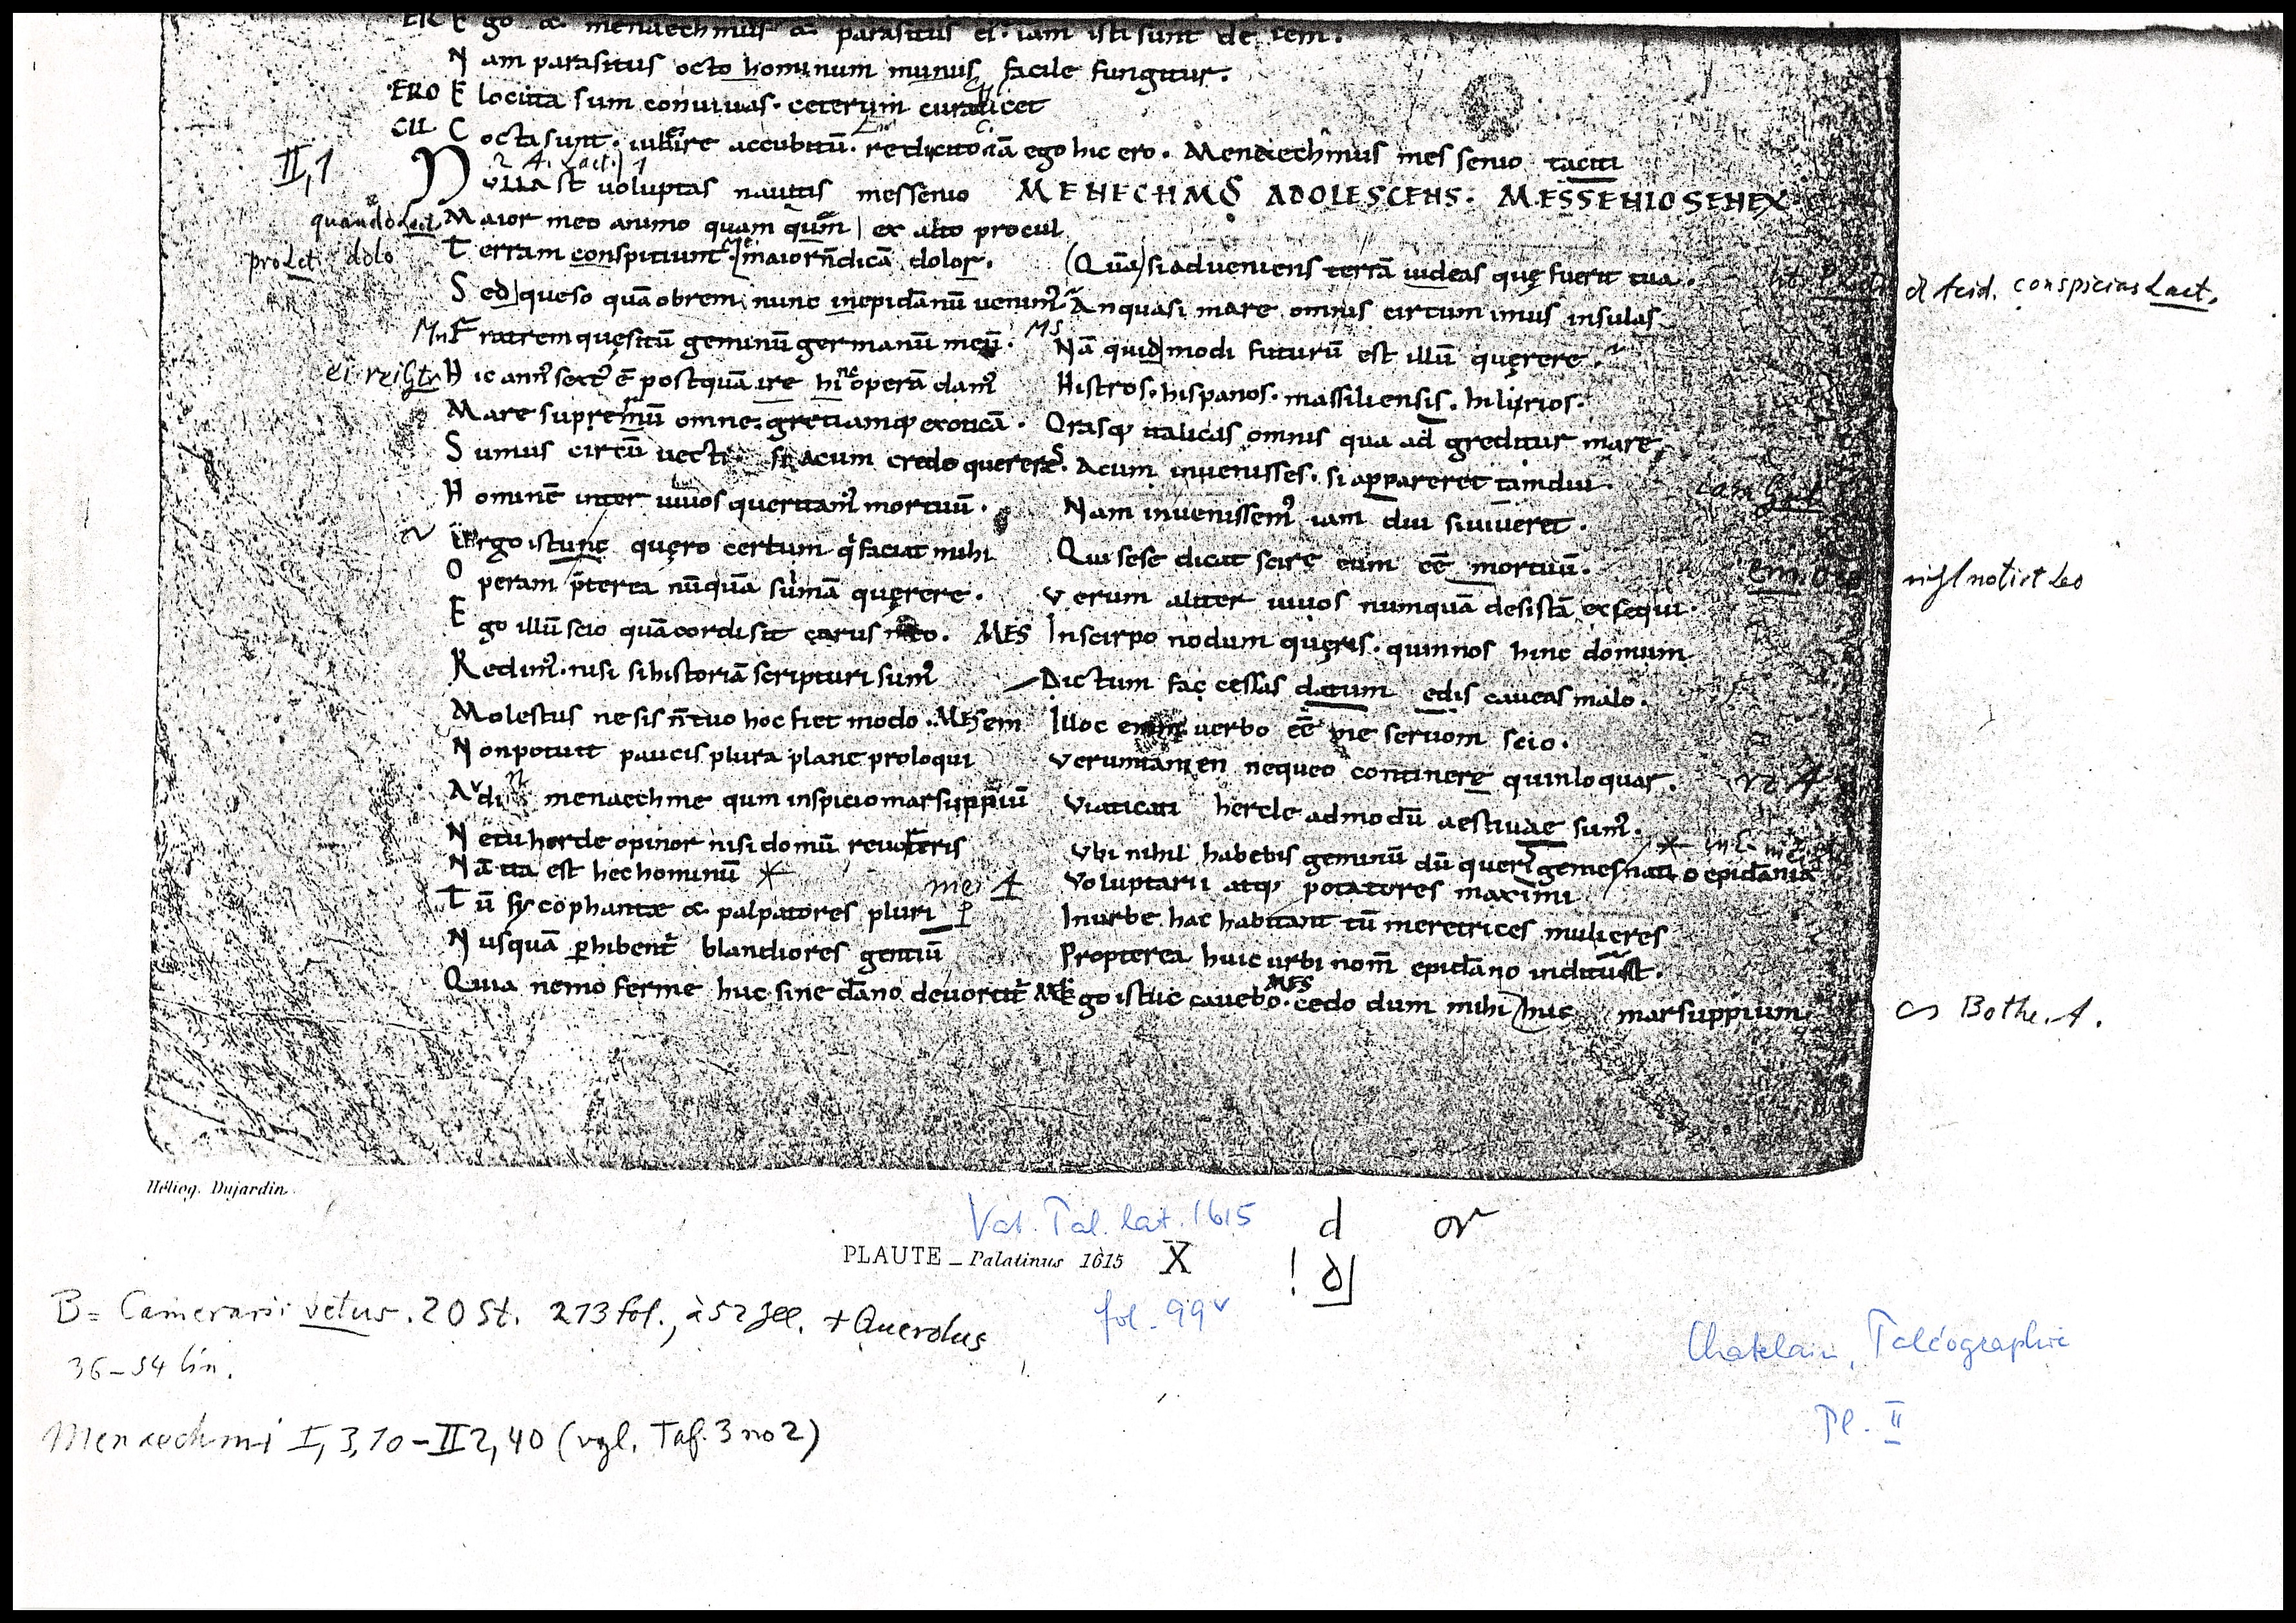 ER E go & menaechmus & parasitus ei. iam isti sunt decem.
N am parasitus octo hominum munus facile fungitur.
ERO E locuta sum conuiuas. ceterum cura licet
CU C octa sunt. iube ire accubitū. redi cito iā ego hic ero. Menaechmus messenio taciti
II,1
N ulla st uoluptas nautis messenio MENECHMUS ADOLESCENS. MESSENIO SENEX
quando M aior meo animo quam qum ex alto procul
pro dolo T erram conspitiunt. maior n̄ dicā dolor. (Quā) si adueniens terrā uideas quę fuerit tua.
d Acid. conspicias Lact.
S ed queso quāobrem nunc inepidānū uenimꝰ An quasi mare omnis circum imus insulas
Mn F ratrem quęsitū geminū germanū meū. MS Nā quid modi futurū est illū quęrere.
H ic annꝰ sextꝰ ē postquā ire hinc operā damꝰ Histros. hispanos. massiliensis. hilyrios.
Mare supremū omne. gretiamq; exoticā. Orasq; italicas omnis qua ad greditur mare
S umus circū uecti. si acum credo quereres. Acum inuenisses. si appareret tamdiu.
H ominē inter uiuos queritamꝰ mortuū. Nam inuenissemꝰ iam diu si uiueret.
Ergo istunc quęro certum q̇ faciat mihi Qui sese dicat scire eum eē mortuū.
em.
O peram p̄terea nūquā sumā quęrere. Verum aliter uiuos numquā desistā exsequi.
E go illū scio quā cordi sit carus meo. MES In scirpo nodum queris. quin nos hinc domum
Redimꝰ. nisi si historiā scripturi sumꝰ Dictum fac cessas datum edis caueas malo.
Molestus ne sis n̄ tuo hoc fiet modo. MES em Illoc enim uerbo eē me seruom scio.
N on potuit paucis plura plane proloqui Verumtamen nequeo continere quin loquar.
Audi menaechme qum inspicio marsuppiū Viaticati hercle admodū aestiuae sumꝰ.
N e tu hercle opinor nisi domū reuorteris Vbi nihil habebis geminū dū queris gemes
Nā ita est hec hominū * nati o epidānia
mei A Voluptarii atq; potatores maximi
T ū sycophantæ & palpatores pluri In urbe hac habitant tū meretrices mulieres
N usquā phibentꝰ blandiores gentiū Propterea huic urbi nom̄ epidāno inditūst.
Quia nemo ferme huc sine dāno deuortitꝰ ME Ego istuc cauebo. MES cedo dum mihi huc marsuppium
Bothe. A.
Héliog. Dujardin.
Vat. Pal. lat. 1615 d or
PLAUTE _ Palatinus 1615 X ! d
fol. 99v
B = Camerarii vetus. 20 St. 213 fol., à 52 Zll. + Querolus
36–54 lin.
Chatelain, Paléographie
Pl. II
Menaechmi I, 3, 10 – II 2, 40 (vgl. Taf. 3 no 2)